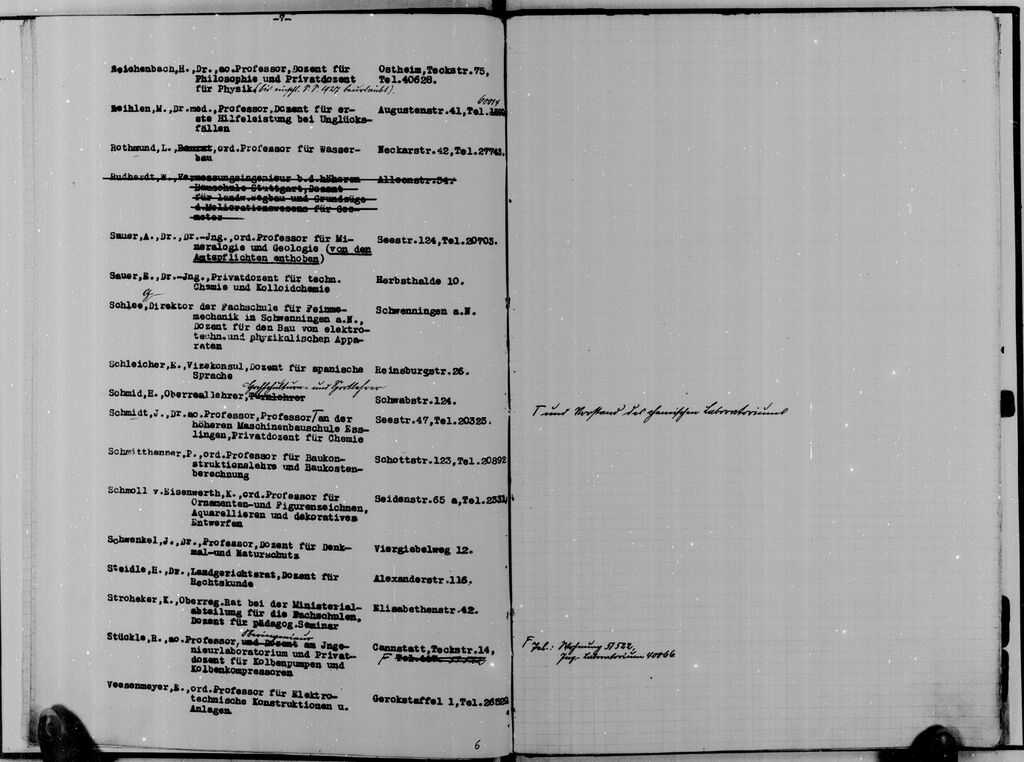 -7-
Reichenbach,H.,Dr.,ao.Professor,Dozent für Ostheim,Teckstr.75,
Philosophie und Privatdozent Tel.40628.
für Physik.(bis einschl. S.S. 1927 beurlaubt).
60014
Reihlen,M.,Dr.med.,Professor,Dozent für er- Augustenstr.41,Tel.
ste Hilfeleistung bei Unglücks-
fällen
Rothmund,L.,Baurat,ord.Professor für Wasser- Neckarstr.42,Tel.27743.
bau
Rudhardt,W.,Vermessungsingenieur b.d.höheren Alleenstr.34.
Bauschule Stuttgart,Dozent
für landw.Wegbau und Grundzüge
d.Meliorationswesens für Geo-
meter
Sauer,A.,Dr.,Dr.-Jng.,ord.Professor für Mi- Seestr.124,Tel.20703.
neralogie und Geologie (von den
Amtspflichten enthoben)
Sauer,E.,Dr.-Jng.,Privatdozent für techn. Herbsthalde 10.
Chemie und Kolloidchemie
G
Schlee,Direktor der Fachschule für Feinme- Schwenningen a.N.
mechanik in Schwenningen a.N.,
Dozent für den Bau von elektro-
techn.und physikalischen Appa-
raten
Schleicher,E.,Vizekonsul,Dozent für spanische Reinsburgstr.26.
Sprache
Hochschulturn- und Sportlehrer
Schmid,H.,Oberreallehrer,Turnlehrer Schwabstr.124.
Schmidt,J.,Dr.ao.Professor,Professor an der Seestr.47,Tel.20323.
höheren Maschinenbauschule Ess-
lingen,Privatdozent für Chemie
Schmitthenner,P.,ord.Professor für Baukon- Schottstr.123,Tel.20892
struktionslehre und Baukosten-
berechnung
Schmoll v.Eisenwerth,K.,ord.Professor für Seidenstr.65 a,Tel.
Ornamenten-und Figurenzeichnen,
Aquarellieren und dekoratives
Entwerfen
Schwenkel,J.,Dr.,Professor,Dozent für Denk- Viergiebelweg 12.
mal-und Naturschutz
Steidle,H.,Dr.,Landgerichtsrat,Dozent für Alexanderstr.116.
Rechtskunde
Stroheker,K.,Oberreg.Rat bei der Ministerial- Elisabethenstr.42.
abteilung für die Fachschulen,
Dozent für pädagog.Seminar
Oberingenieur
Stückle,R.,ao.Professor,und Dozent am Jnge- Cannstatt,Teckstr.14,
nieurlaboratorium und Privat- Tel.
dozent für Kolbenpumpen und
Kolbenkompressoren
Veesenmeyer,E.,ord.Professor für Elektro- Gerokstaffel 1,Tel.26522
technische Konstruktionen u.
Anlagen.
6
und Vorstand des chemischen Laboratoriums
Tel.: Wohnung 51522,
Ing. Laboratorium 40066